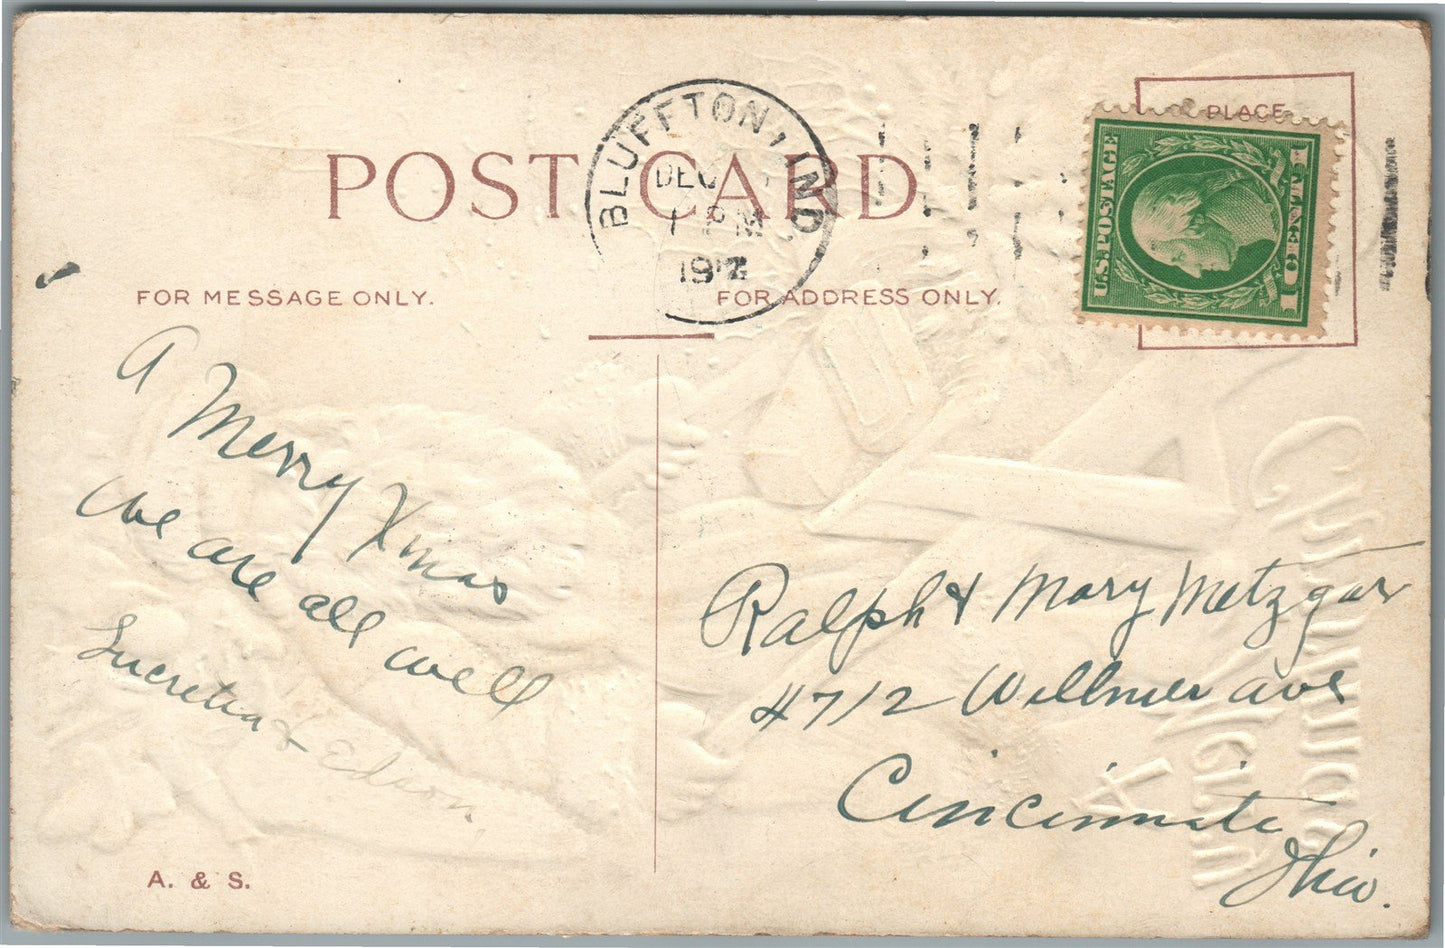 POST CARD
BLUFFTON, IND
DEC
1 PM
PLACE
U.S. POSTAGE
1 CENT 1
FOR MESSAGE ONLY.
FOR ADDRESS ONLY.
A Merry Xmas
we are all well
Lucretia & Edson.
Ralph & Mary Metzgar
4712 Willmer ave
Cincinnati
Ohio.
A. & S.